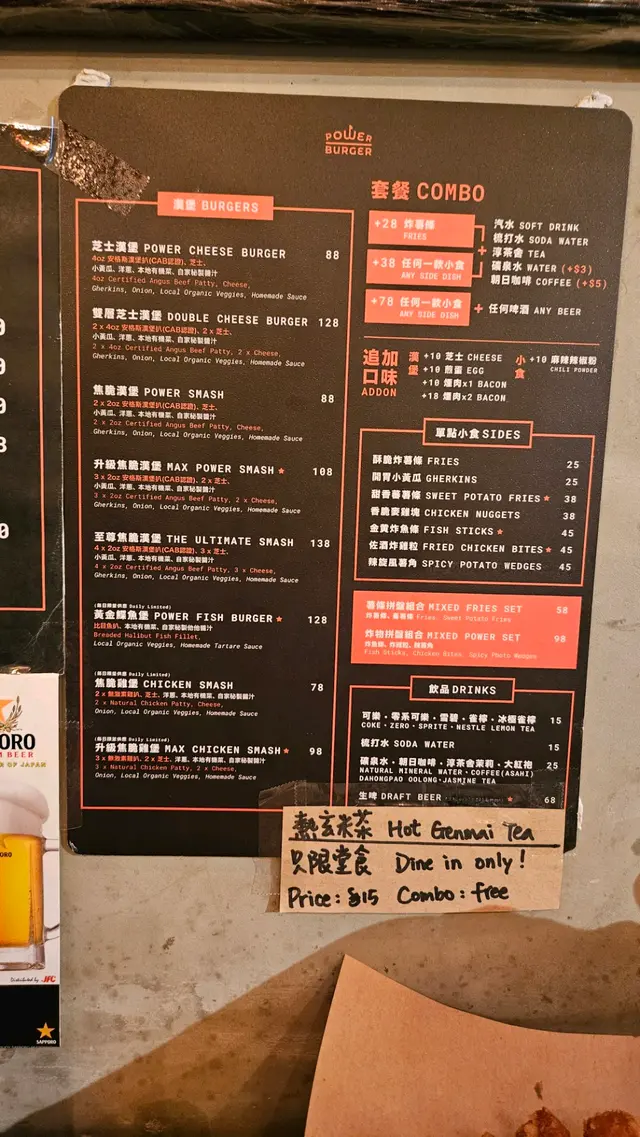 POWER
BURGER
漢堡 BURGERS
芝士漢堡 POWER CHEESE BURGER 88
4oz 安格斯漢堡扒(CAB認證)、芝士、
小黃瓜、洋蔥、本地有機菜、自家秘製醬汁
4oz Certified Angus Beef Patty, Cheese,
Gherkins, Onion, Local Organic Veggies, Homemade Sauce
雙層芝士漢堡 DOUBLE CHEESE BURGER 128
2 x 4oz 安格斯漢堡扒(CAB認證)、2 x 芝士、
小黃瓜、洋蔥、本地有機菜、自家秘製醬汁
2 x 4oz Certified Angus Beef Patty, 2 x Cheese,
Gherkins, Onion, Local Organic Veggies, Homemade Sauce
焦脆漢堡 POWER SMASH 88
2 x 2oz 安格斯漢堡扒(CAB認證)、芝士、
小黃瓜、洋蔥、本地有機菜、自家秘製醬汁
2 x 2oz Certified Angus Beef Patty, Cheese,
Gherkins, Onion, Local Organic Veggies, Homemade Sauce
升級焦脆漢堡 MAX POWER SMASH★ 108
3 x 2oz 安格斯漢堡扒(CAB認證)、2 x 芝士、
小黃瓜、洋蔥、本地有機菜、自家秘製醬汁
3 x 2oz Certified Angus Beef Patty, 2 x Cheese,
Gherkins, Onion, Local Organic Veggies, Homemade Sauce
至尊焦脆漢堡 THE ULTIMATE SMASH 138
4 x 2oz 安格斯漢堡扒(CAB認證)、3 x 芝士、
小黃瓜、洋蔥、本地有機菜、自家秘製醬汁
4 x 2oz Certified Angus Beef Patty, 3 x Cheese,
Gherkins, Onion, Local Organic Veggies, Homemade Sauce
(每日限量供應 Daily Limited)
黃金鰈魚堡 POWER FISH BURGER★ 128
比目魚扒、本地有機菜、自家秘製他他醬汁
Breaded Halibut Fish Fillet,
Local Organic Veggies, Homemade Tartare Sauce
(每日限量供應 Daily Limited)
焦脆雞堡 CHICKEN SMASH 78
2 x 無激素雞扒、芝士、洋蔥、本地有機菜、自家秘製醬汁
2 x Natural Chicken Patty, Cheese,
Onion, Local Organic Veggies, Homemade Sauce
(每日限量供應 Daily Limited)
升級焦脆雞堡 MAX CHICKEN SMASH★ 98
3 x 無激素雞扒、2 x 芝士、洋蔥、本地有機菜、自家秘製醬汁
3 x Natural Chicken Patty, 2 x Cheese,
Onion, Local Organic Veggies, Homemade Sauce
套餐 COMBO
+28 炸薯條
FRIES
+38 任何一款小食
ANY SIDE DISH
+78 任何一款小食
ANY SIDE DISH
+
汽水 SOFT DRINK
梳打水 SODA WATER
淳茶舍 TEA
礦泉水 WATER (+$3)
朝日咖啡 COFFEE (+$5)
+ 任何啤酒 ANY BEER
追加口味
ADDON
漢堡
+10 芝士 CHEESE
+10 煎蛋 EGG
+10 煙肉x1 BACON
+18 煙肉x2 BACON
小食
+10 麻辣辣椒粉
CHILI POWDER
單點小食 SIDES
酥脆炸薯條 FRIES 25
開胃小黃瓜 GHERKINS 25
甜香蕃薯條 SWEET POTATO FRIES★ 38
香脆麥雞塊 CHICKEN NUGGETS 38
金黃炸魚條 FISH STICKS★ 45
佐酒炸雞粒 FRIED CHICKEN BITES★ 45
辣旋風薯角 SPICY POTATO WEDGES 45
薯條拼盤組合 MIXED FRIES SET 58
炸薯條、蕃薯條 Fries, Sweet Potato Fries
炸物拼盤組合 MIXED POWER SET 98
炸魚條、炸雞粒、辣薯角
Fish Sticks, Chicken Bites, Spicy Photo Wedges
飲品 DRINKS
可樂・零系可樂・雪碧・雀檸・冰極雀檸 15
COKE・ZERO・SPRITE・NESTLE LEMON TEA
梳打水 SODA WATER 15
礦泉水・朝日咖啡・淳茶舍茉莉・大紅袍 25
NATURAL MINERAL WATER・COFFEE(ASAHI)
DAHONGPAO OOLONG・JASMINE TEA
生啤 DRAFT BEER ★ 68
熱玄米茶 Hot Genmai Tea
只限堂食 Dine in only!
Price: $15 Combo: free
ORO
BEER
OF JAPAN
Distributed by JFC
SAPPORO